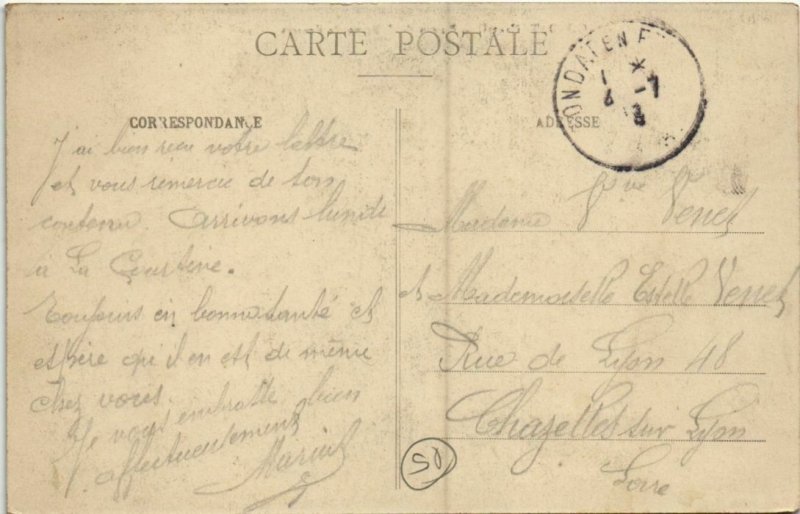 CARTE POSTALE
CORRESPONDANCE
J'ai bien reçu votre lettre
et vous remercie de son
contenu. Arrivons lundi
à La Courtine.
Toujours en bonne santé et
espère qu'il en est de même
chez vous.
Je vous embrasse bien
affectueusement
ADRESSE
Madame Vve Venet
et Mademoiselle Estelle Venet
Rue de Lyon 48
Chazelles sur Lyon
Loire
50